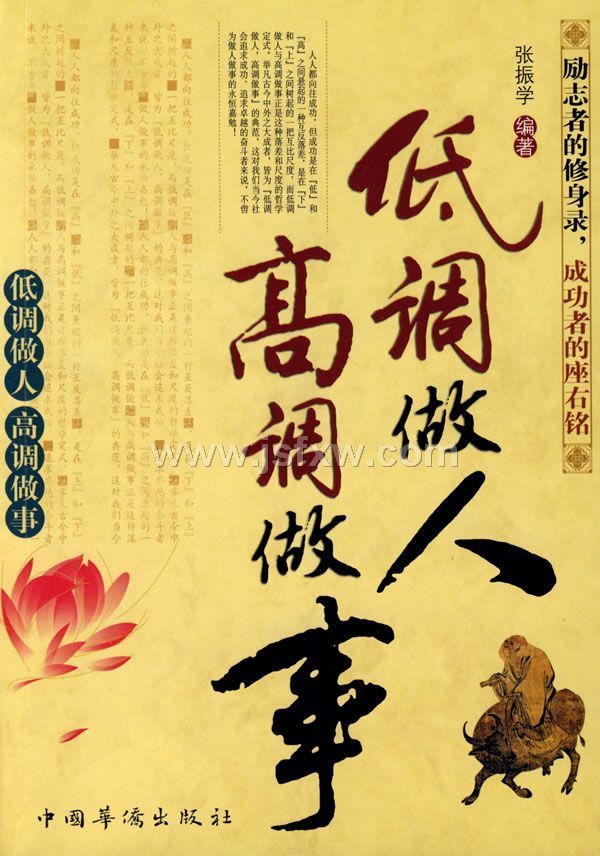 励志者的修身录，成功者的座右铭
张振学 编著
低调做人
高调做事
人人都向往成功，但成功是在『低』和
『高』之间悬起的一种互反落差，是在『下』
和『上』之间树起的一把互比尺度，而低调
做人与高调做事正是这种落差和尺度的哲学
定式。举凡古今中外之大成者，皆为『低调
做人，高调做事』的典范，这对我们当今社
会追求成功、追求卓越的奋斗者来说，不啻
为做人做事的永恒嘉勉！
低调做人 高调做事
www.jsfxw.com
中國華僑出版社